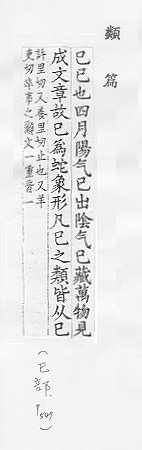 類篇
巳巳也四月陽气巳出陰气巳藏萬物見
成文章故巳爲蛇象形凡巳之類皆从巳
詳里切又養里切止也又羊
吏切卒事之辭文一重音一
(巳部、